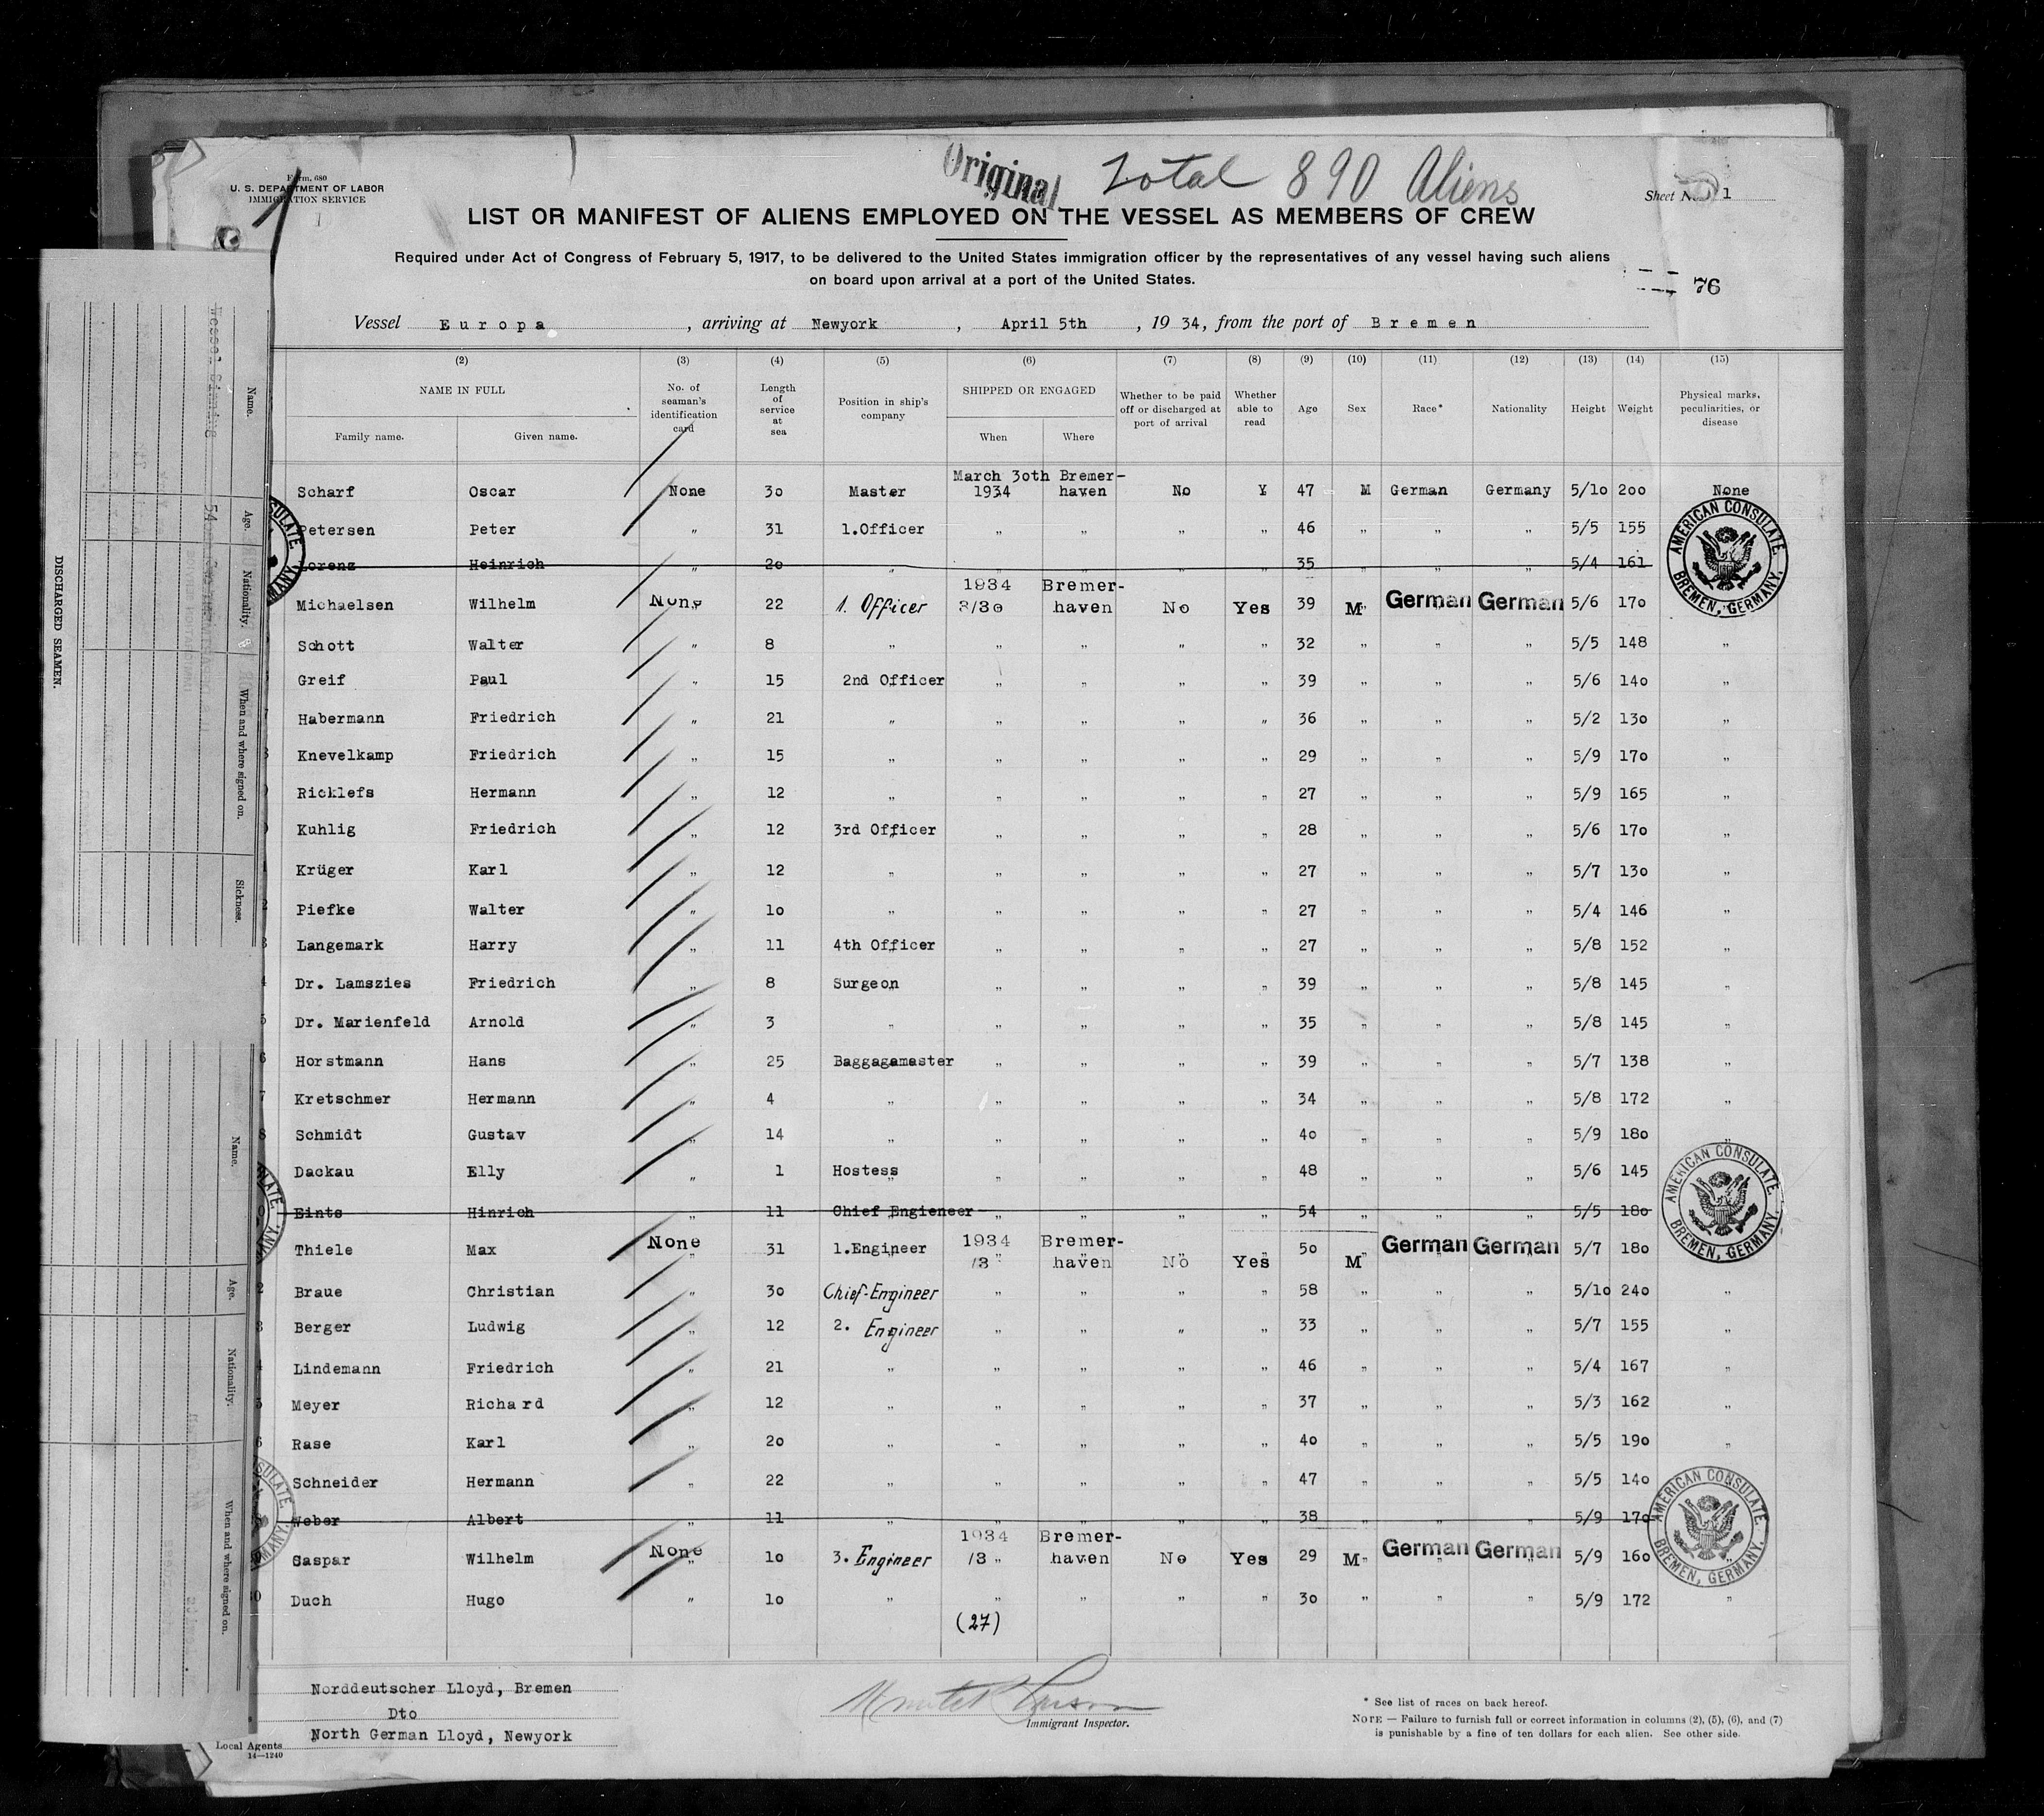 Original Total 890 Aliens
Form. 680
U. S. DEPARTMENT OF LABOR
IMMIGRATION SERVICE
Sheet No. 1
LIST OR MANIFEST OF ALIENS EMPLOYED ON THE VESSEL AS MEMBERS OF CREW
Required under Act of Congress of February 5, 1917, to be delivered to the United States immigration officer by the representatives of any vessel having such aliens
on board upon arrival at a port of the United States.
76
Vessel Europa, arriving at Newyork, April 5th, 1934, from the port of Bremen
(2) (3) (4) (5) (6) (7) (8) (9) (10) (11) (12) (13) (14) (15)
NAME IN FULL Family name. Given name. No. of seaman's identification card Length of service at sea Position in ship's company SHIPPED OR ENGAGED When Where Whether to be paid off or discharged at port of arrival Whether able to read Age Sex Race* Nationality Height Weight Physical marks, peculiarities, or disease
March 3oth Bremer-
Scharf Oscar None 3o Master 1934 haven No Y 47 M German Germany 5/1o 2oo None
Petersen Peter „ 31 1.Officer „ „ „ „ 46 „ „ „ 5/5 155
Lorenz Heinrich „ 2o „ „ „ „ „ 35 „ „ „ 5/4 161
1934 Bremer-
Michaelsen Wilhelm None 22 1. Officer 3/30 haven No Yes 39 M German German 5/6 17o
Schott Walter „ 8 „ „ „ „ „ 32 „ „ „ 5/5 148 „
Greif Paul „ 15 2nd Officer „ „ „ „ 39 „ „ „ 5/6 14o „
Habermann Friedrich „ 21 „ „ „ „ „ 36 „ „ „ 5/2 13o „
Knevelkamp Friedrich „ 15 „ „ „ „ „ 29 „ „ „ 5/9 17o „
Ricklefs Hermann „ 12 „ „ „ „ „ 27 „ „ „ 5/9 165 „
Kuhlig Friedrich „ 12 3rd Officer „ „ „ „ 28 „ „ „ 5/6 17o „
Krüger Karl „ 12 „ „ „ „ „ 27 „ „ „ 5/7 13o „
Piefke Walter „ 1o „ „ „ „ „ 27 „ „ „ 5/4 146 „
Langemark Harry „ 11 4th Officer „ „ „ „ 27 „ „ „ 5/8 152 „
Dr. Lamszies Friedrich „ 8 Surgeon „ „ „ „ 39 „ „ „ 5/8 145 „
Dr. Marienfeld Arnold „ 3 „ „ „ „ „ 35 „ „ „ 5/8 145 „
Horstmann Hans „ 25 Baggagemaster „ „ „ „ 39 „ „ „ 5/7 138 „
Kretschmer Hermann „ 4 „ „ „ „ „ 34 „ „ „ 5/8 172 „
Schmidt Gustav „ 14 „ „ „ „ „ 4o „ „ „ 5/9 18o „
Dackau Elly „ 1 Hostess „ „ „ „ 48 „ „ „ 5/6 145
Eints Hinrich „ 11 Chief Engieneer „ „ „ „ 54 „ „ „ 5/5 18o
1934 Bremer-
Thiele Max None 31 1.Engineer /3 haven No Yes 5o M German German 5/7 18o
Braue Christian „ 3o Chief-Engineer „ „ „ „ 58 „ „ „ 5/1o 24o „
Berger Ludwig „ 12 2. Engineer „ „ „ „ 33 „ „ „ 5/7 155 „
Lindemann Friedrich „ 21 „ „ „ „ „ 46 „ „ „ 5/4 167 „
Meyer Richard „ 12 „ „ „ „ „ 37 „ „ „ 5/3 162 „
Rase Karl „ 2o „ „ „ „ „ 4o „ „ „ 5/5 19o „
Schneider Hermann „ 22 „ „ „ „ „ 47 „ „ „ 5/5 14o
Weber Albert „ 11 „ „ „ „ „ 38 „ „ „ 5/9 17o
1934 Bremer-
Caspar Wilhelm None 1o 3. Engineer /3 haven No Yes 29 M German German 5/9 16o „
Duch Hugo „ 1o „ „ „ „ „ 3o „ „ „ 5/9 172 „
(27)
AMERICAN CONSULATE. BREMEN, GERMANY.
AMERICAN CONSULATE. BREMEN, GERMANY.
AMERICAN CONSULATE. BREMEN, GERMANY.
Norddeutscher Lloyd, Bremen
Dto
North German Lloyd, Newyork
Local Agents
14—1240
Immigrant Inspector.
* See list of races on back hereof.
NOTE — Failure to furnish full or correct information in columns (2), (5), (6), and (7)
is punishable by a fine of ten dollars for each alien. See other side.
DISCHARGED SEAMEN.
Name. Age. Nationality. When and where signed on. Sickness.
Name. Age. Nationality. When and where signed on.